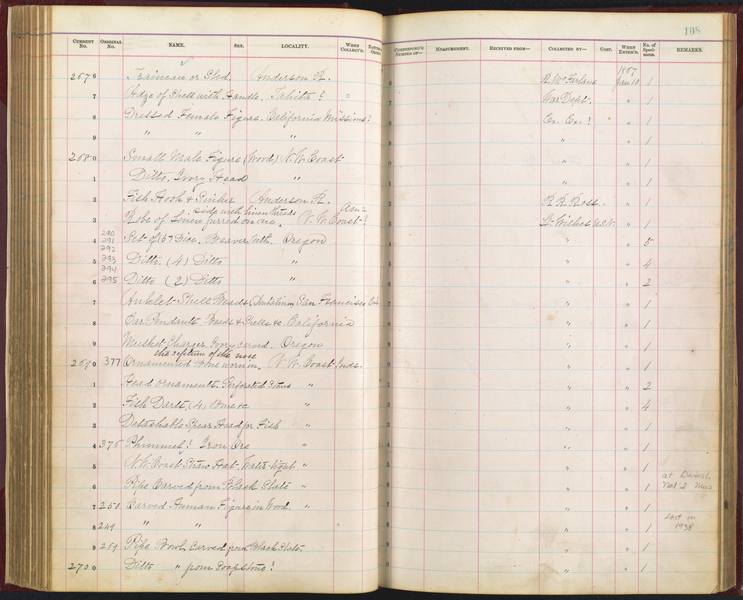 108
CURRENT No. ORIGINAL No. NAME. SEX. LOCALITY. WHEN COLLECT'D. NATURE CORRESPOND'G NUMBER OF— MEASUREMENT. RECEIVED FROM— COLLECTED BY— COST. WHEN ENTER'D. No. of Speci- mens. REMARKS.
1867
2676 Traineau or Sled. Anderson R. R. McFarlane Jany 10 1
7 Adze of Shell with Handle. Tahiti? " War Dept. " 1
8 Dressed Female Figure. California Missions? Ex. Ex.? " 1
9 " " " " " " 1
2680 Small Male Figure (Wood) N.W. Coast " " 1
1 Ditto, Ivory Head " " " 1
2 Fish Hook & Sinker Anderson R. R. R. Ross. " 1
side with linen threads
3 Robe of furred on one N.W. Coast? Lt. Wilkes U.S.N. " 1
290
291
292
4 Set of Dice, Beaver teeth. Oregon " " 5
293
294
5 Ditto (4) Ditto " " " 4
6 295 Ditto (2) Ditto " " " 2
7 Anklet-Shell Beads (Dentalium) San Francisco Cal. " " 1
8 Ear Pendants Beads & Shells &c. California " " 1
9 Musket Charger. Ivory carved. Oregon " " 1
the septum of the nose
2690 377 Ornamented Bone worn in N.W. Coast Inds. " " 1
1 Head Ornaments. Perforated " " " 2
2 Fish Darts, (4) Bone &c " " " 4
3 Detachable Spear Head for Fish " " " 1
4 375 Plummet? Iron Ore " " " 1
5 N.W. Coast Straw Hat, Water tight " " " 1
6 Pipe Carved from Black Slate " " " 1 at Nat'l Mus
7 258 Carved Human Figure in Wood. " " " 1
8 249 " " " " 1 Lost in 1938
9 259 Pipe Bowl Carved from Black Slate. " " 1
2700 Ditto " from Soapstone? " " 1